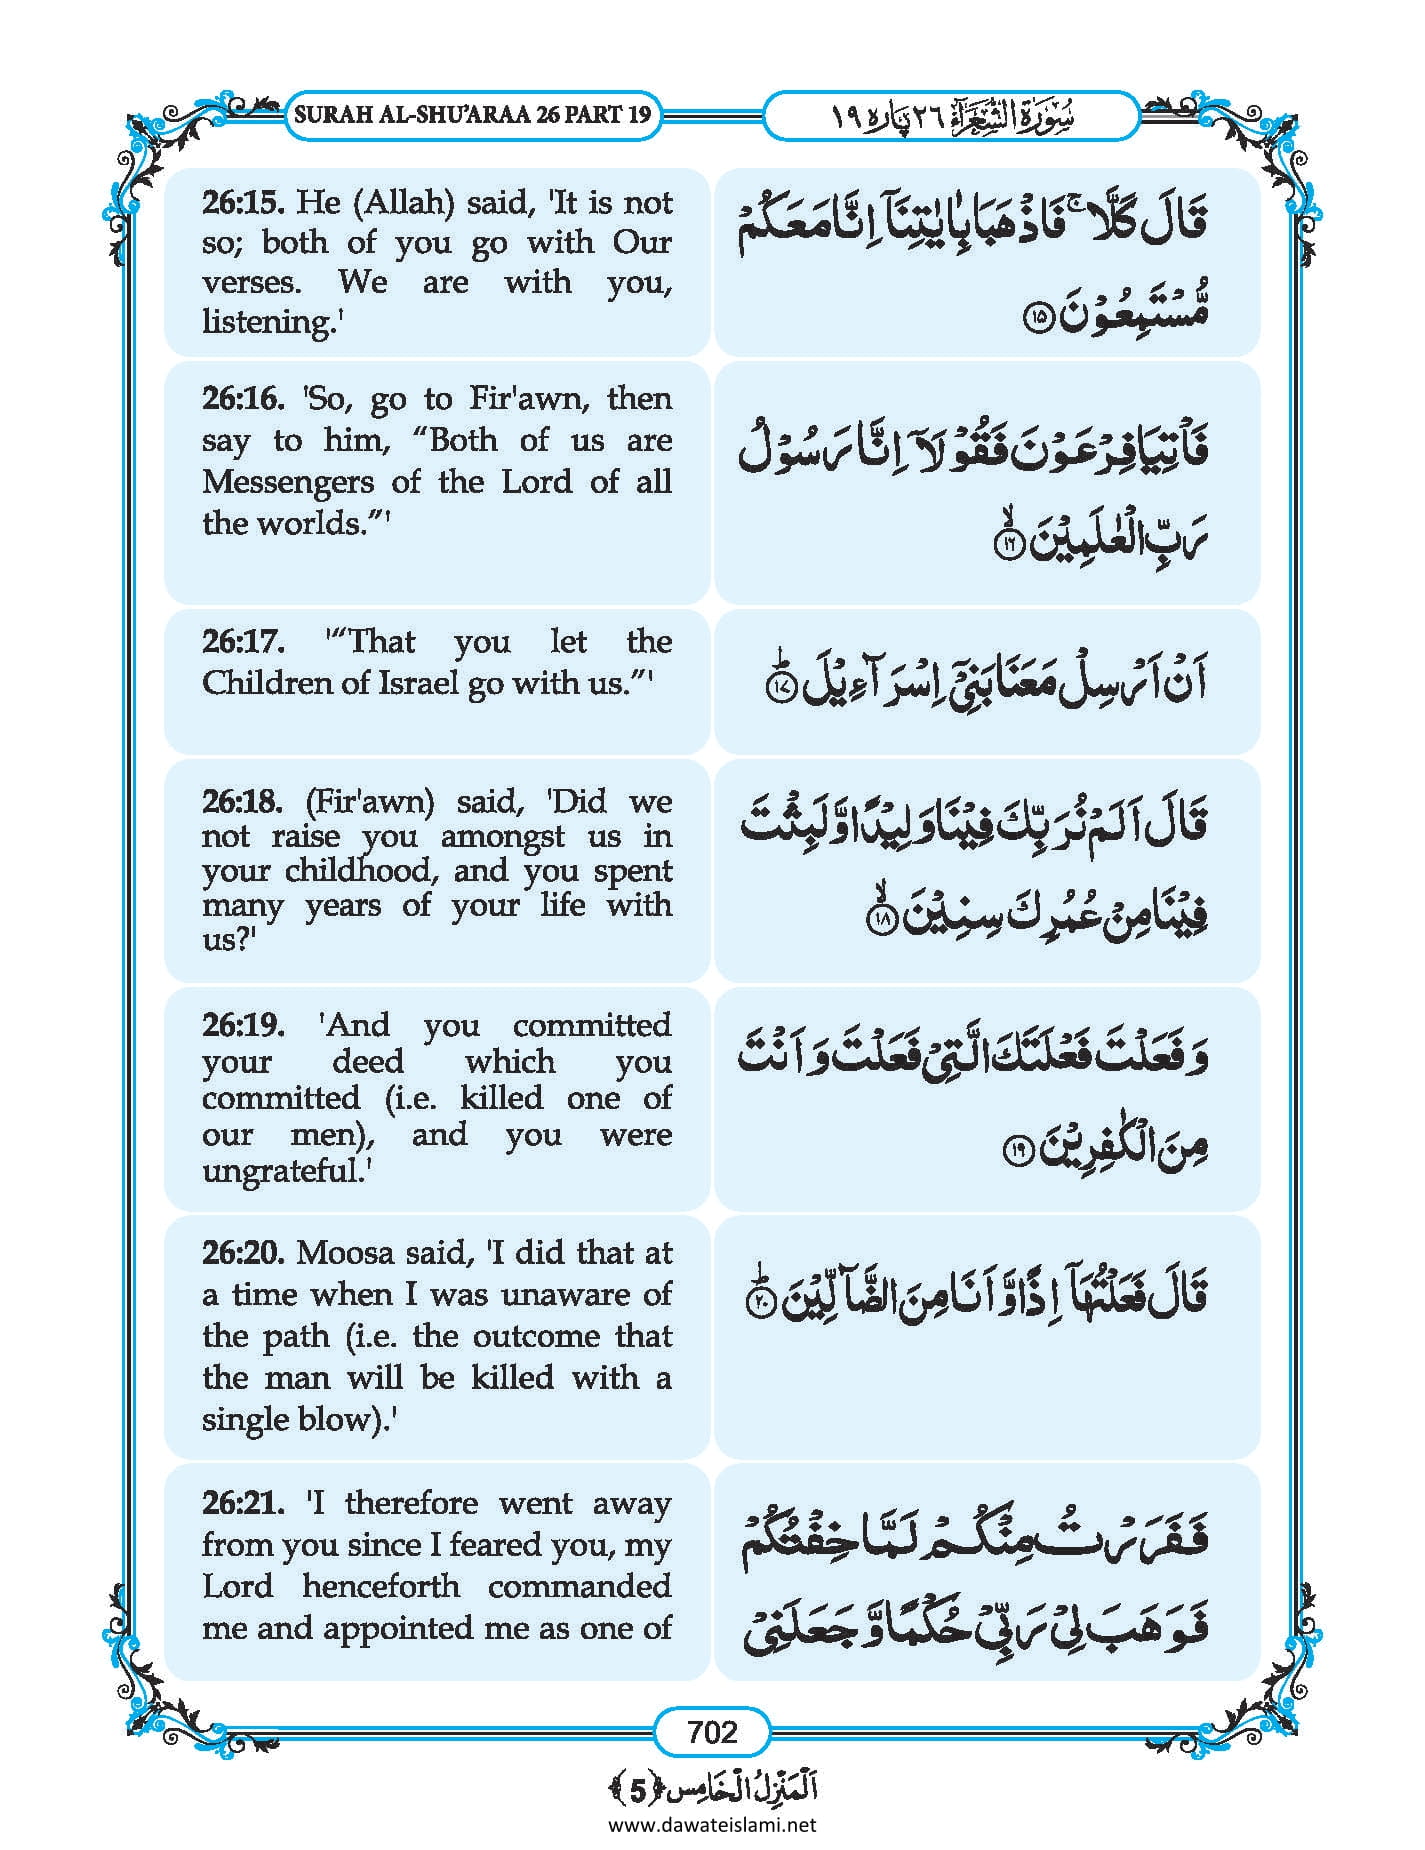 SURAH AL-SHU’ARAA 26 PART 19
سُوْرَةُ الشُّعَرَآء ٢٦ پارہ ١٩
26:15. He (Allah) said, 'It is not
so; both of you go with Our
verses. We are with you,
listening.'
قَالَ كَلَّا ۚ فَاذْهَبَا بِاٰيٰتِنَاۤ اِنَّا مَعَكُمْ
مُّسْتَمِعُوْنَ ﴿۱۵﴾
26:16. 'So, go to Fir'awn, then
say to him, “Both of us are
Messengers of the Lord of all
the worlds.”'
فَاْتِيَا فِرْعَوْنَ فَقُوْلَاۤ اِنَّا رَسُوْلُ
رَبِّ الْعٰلَمِيْنَ ۙ﴿۱۶﴾
26:17. '“That you let the
Children of Israel go with us.”'
اَنْ اَرْسِلْ مَعَنَا بَنِيْۤ اِسْرَآءِيْلَ ؕ﴿۱۷﴾
26:18. (Fir'awn) said, 'Did we
not raise you amongst us in
your childhood, and you spent
many years of your life with
us?'
قَالَ اَلَمْ نُرَبِّكَ فِيْنَا وَلِيْدًا وَّلَبِثْتَ
فِيْنَا مِنْ عُمُرِكَ سِنِيْنَ ۙ﴿۱۸﴾
26:19. 'And you committed
your deed which you
committed (i.e. killed one of
our men), and you were
ungrateful.'
وَ فَعَلْتَ فَعْلَتَكَ الَّتِيْ فَعَلْتَ وَ اَنْتَ
مِنَ الْكٰفِرِيْنَ ﴿۱۹﴾
26:20. Moosa said, 'I did that at
a time when I was unaware of
the path (i.e. the outcome that
the man will be killed with a
single blow).'
قَالَ فَعَلْتُهَاۤ اِذًا وَّ اَنَا مِنَ الضَّآلِّيْنَ ؕ﴿۲۰﴾
26:21. 'I therefore went away
from you since I feared you, my
Lord henceforth commanded
me and appointed me as one of
فَفَرَرْتُ مِنْكُمْ لَمَّا خِفْتُكُمْ
فَوَهَبَ لِيْ رَبِّيْ حُكْمًا وَّ جَعَلَنِيْ
702
اَلْمَنْزِلُ الْخَامِس ﴿5﴾
www.dawateislami.net